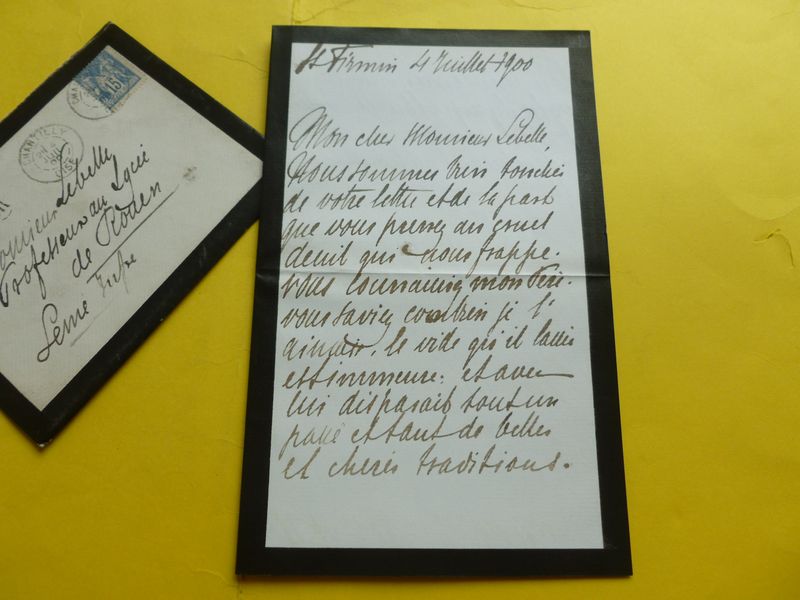 CHANTILLY
OISE
15
Monsieur Lebelle
Professeur au Lycée
de Rouen
Seine Infre
St Firmin 4 Juillet 1900
Mon cher Monsieur Lebelle,
Nous sommes très touchés
de votre lettre et de la part
que vous prenez au cruel
deuil qui nous frappe.
Vous connaissiez mon Père.
vous saviez combien je l'
aimais. le vide qu'il laisse
est immense. et avec
lui disparait tout un
passé et tant de belles
et chères traditions.